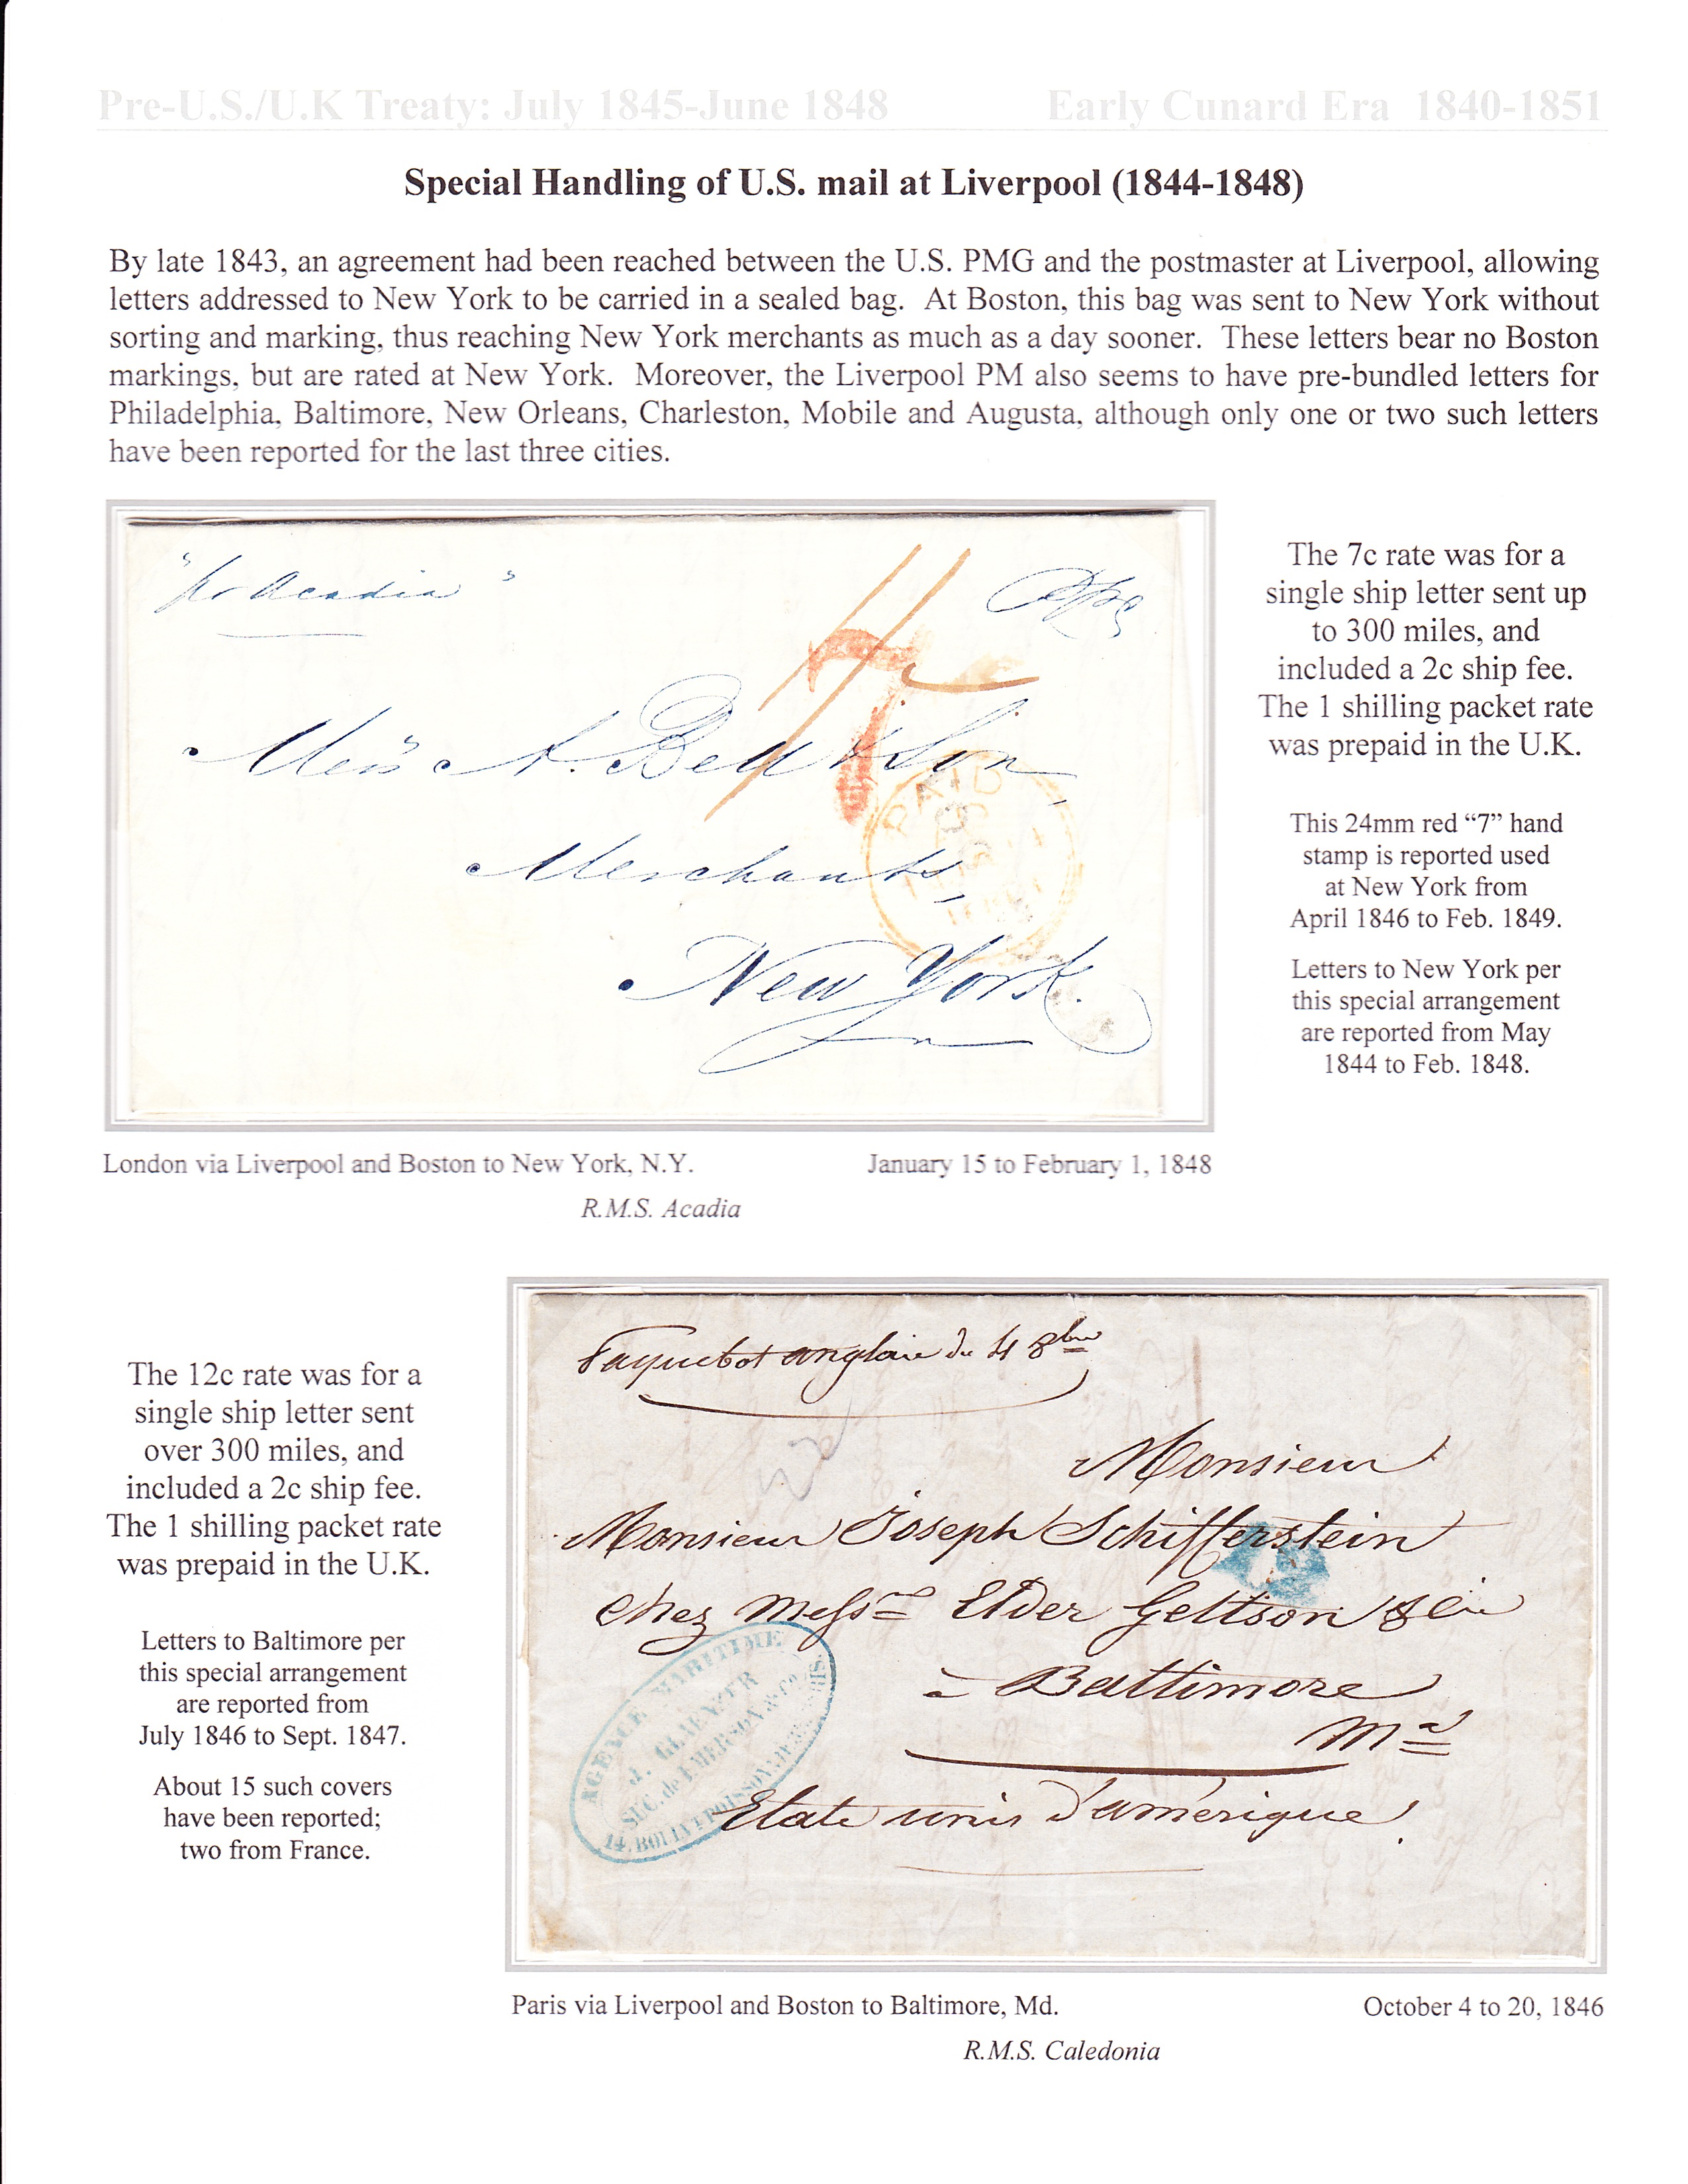 Pre-U.S./U.K Treaty: July 1845-June 1848 Early Cunard Era 1840-1851
Special Handling of U.S. mail at Liverpool (1844-1848)
By late 1843, an agreement had been reached between the U.S. PMG and the postmaster at Liverpool, allowing
letters addressed to New York to be carried in a sealed bag. At Boston, this bag was sent to New York without
sorting and marking, thus reaching New York merchants as much as a day sooner. These letters bear no Boston
markings, but are rated at New York. Moreover, the Liverpool PM also seems to have pre-bundled letters for
Philadelphia, Baltimore, New Orleans, Charleston, Mobile and Augusta, although only one or two such letters
have been reported for the last three cities.
"pr Acadia"
7
Mess A. Bell & Son,
PAID
Merchants,
New York.
The 7c rate was for a
single ship letter sent up
to 300 miles, and
included a 2c ship fee.
The 1 shilling packet rate
was prepaid in the U.K.
This 24mm red “7” hand
stamp is reported used
at New York from
April 1846 to Feb. 1849.
Letters to New York per
this special arrangement
are reported from May
1844 to Feb. 1848.
London via Liverpool and Boston to New York, N.Y. January 15 to February 1, 1848
R.M.S. Acadia
The 12c rate was for a
single ship letter sent
over 300 miles, and
included a 2c ship fee.
The 1 shilling packet rate
was prepaid in the U.K.
Letters to Baltimore per
this special arrangement
are reported from
July 1846 to Sept. 1847.
About 15 such covers
have been reported;
two from France.
Paquebot anglais du 4 8bre
Monsieur
Monsieur Joseph Schifferstein
chez Messrs Elder Geltson & Cie
à Baltimore
Md
Etats unis d'amérique
AGENCE MARITIME
J. GLAENZER
SUC. de EMERSON & Co
Paris via Liverpool and Boston to Baltimore, Md. October 4 to 20, 1846
R.M.S. Caledonia